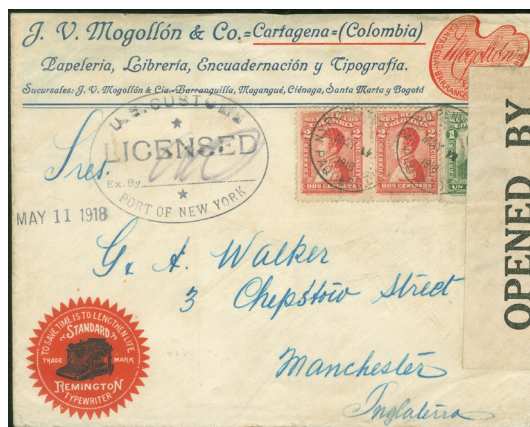 J. V. Mogollón & Co. = Cartagena = (Colombia)
Papelería, Librería, Encuadernación y Tipografía.
Sucursales: J. V. Mogollón & Cía. - Barranquilla, Magangué, Ciénaga, Santa Marta y Bogotá
Mogollón
U. S. CUSTOMS
LICENSED
Ex. By
PORT OF NEW YORK
MAY 11 1918
DOS CENTAVOS
DOS CENTAVOS
OPENED BY
Sres.
G. A. Walker
3 Chepstow Street
Manchester
Inglaterra
TO SAVE TIME IS TO LENGTHEN LIFE
STANDARD
TRADE MARK
REMINGTON
TYPEWRITER